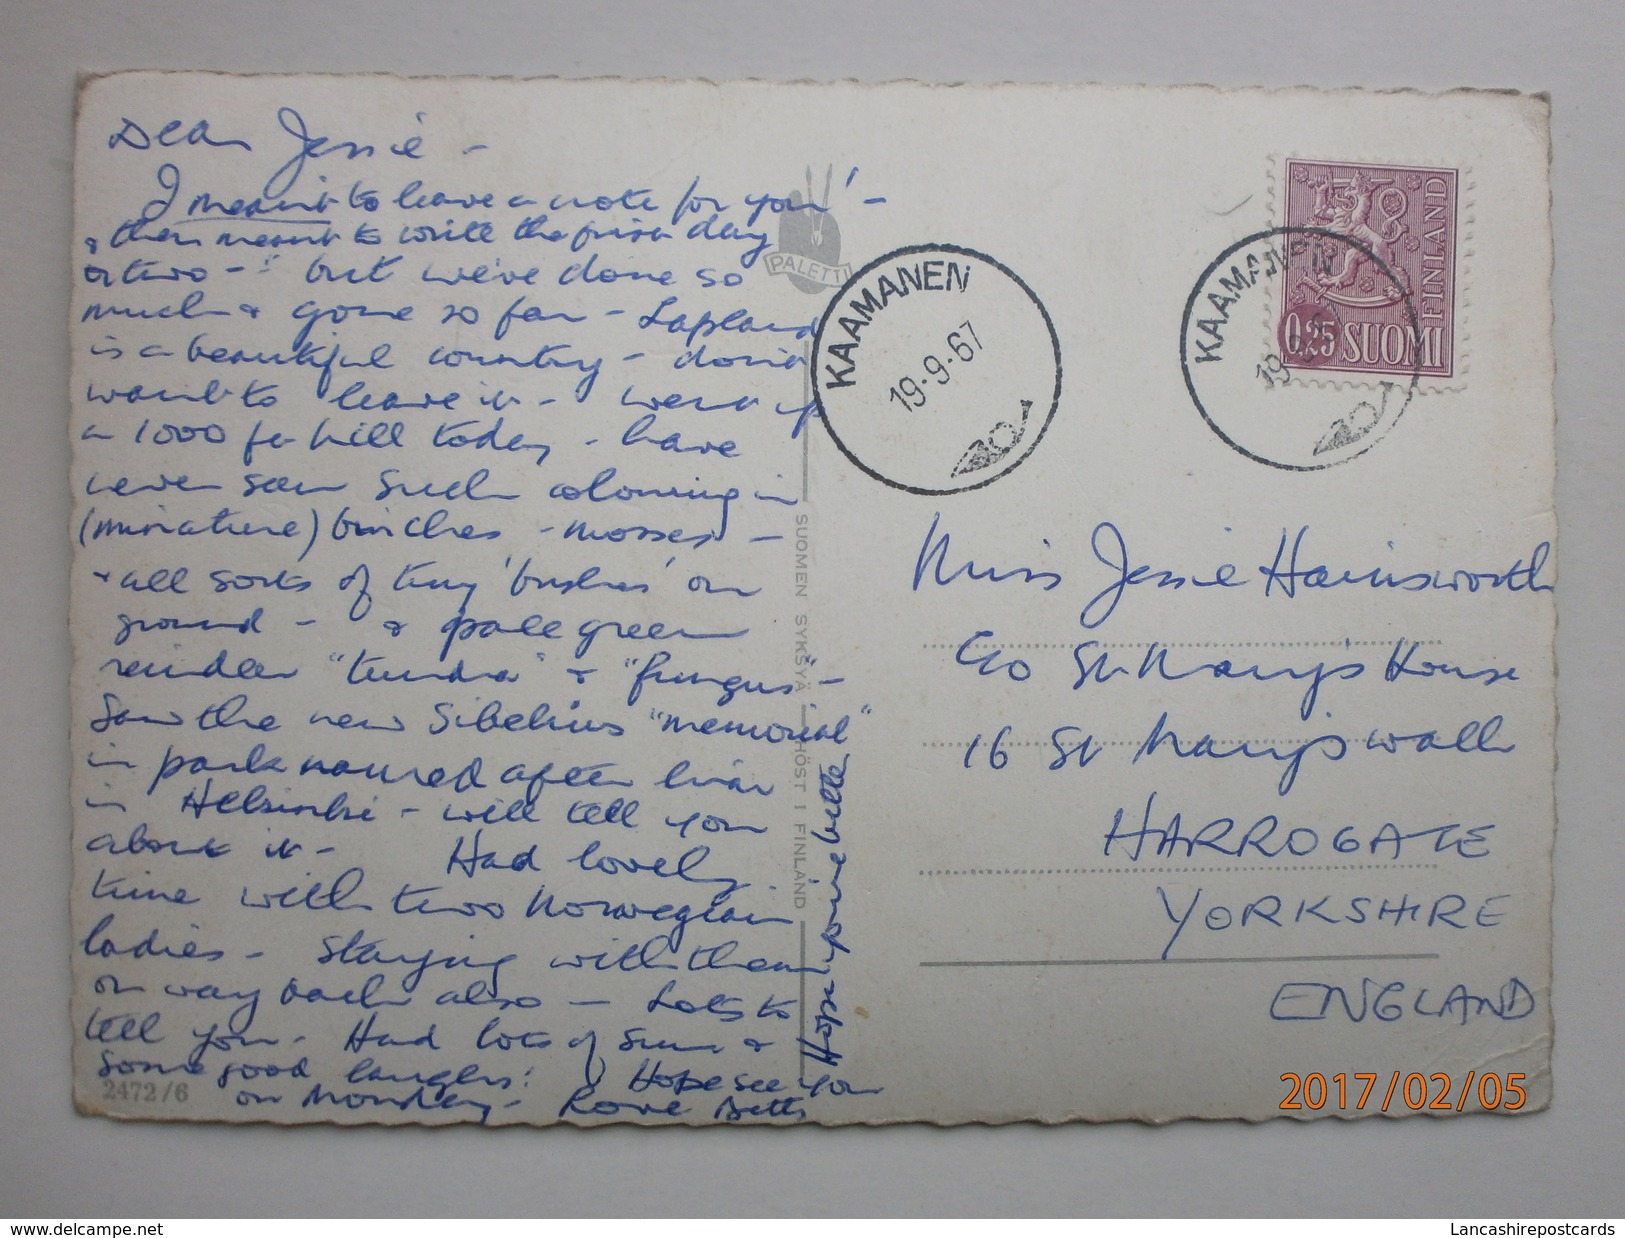 Dear Jessie -
I meant to leave a note for you! -
& then meant to write the first day
or two - but we've done so
much & gone so far - Lapland
is a beautiful country - don't
want to leave it - went up
a 1000 ft hill today - have
never seen such colouring in
(miniature) birches - mosses -
& all sorts of tiny 'bushes' on
ground - & pale green
reindeer "tundra" & "fungus" -
Saw the new Sibelius "memorial"
in park named after him
in Helsinki - will tell you
about it - Had lovely
time with two Norwegian
ladies - staying with them
on way back also - Lots to
tell you. Had lots of sun &
some good laughs! Hope see you
on Monday - Love Betts
Hope you're better
PALETTI
SUOMEN SYKSYÄ - HÖST I FINLAND
2472/6
KAAMANEN
19.9.67
KAAMANEN
19.9.67
0,25 SUOMI
FINLAND
Miss Jessie Hainsworth
c/o St Mary's House
16 St Mary's Walk
HARROGATE
YORKSHIRE
ENGLAND
2017/02/05
www.delcampe.net
Lancashirepostcards